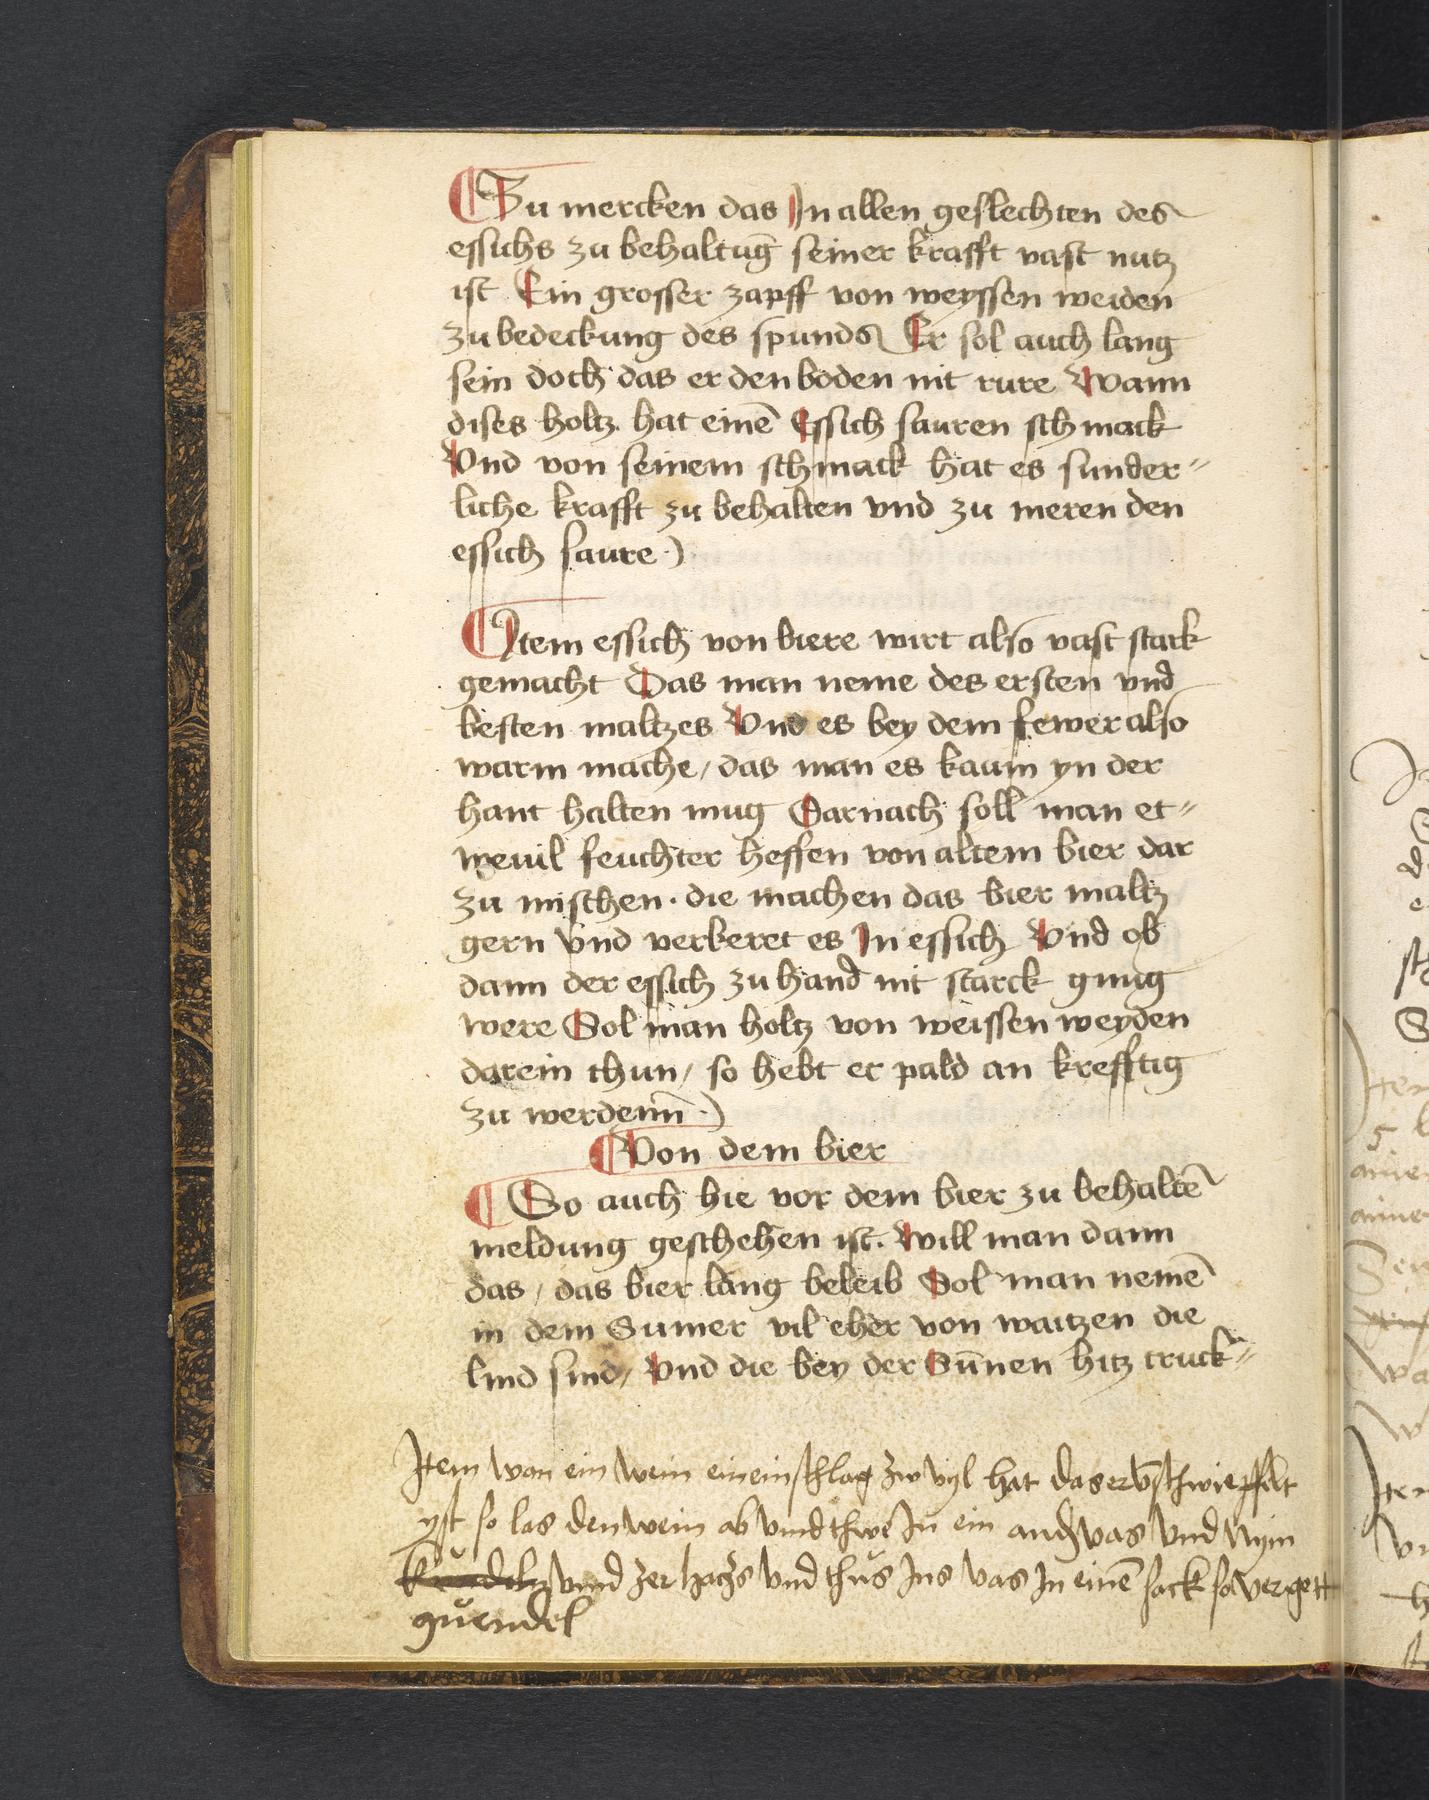 Zu mercken das In allen geslechten des
essichs zu behaltūg seiner krafft vast nutz
ist Ein grosser zapff von weyssen weiden
zu bedeckung des spunds Er sol auch lang
sein doch das er den boden nit rure Wann
dises holtz hat einē Essich sauren schmack
Vnd von seinem schmack hat es sunder〃
liche krafft zu behalten vnd zu meren den
essich saure
Item essich von biere wirt also vast stark
gemacht Das man neme des ersten vnd
besten maltzes Vnd es bey dem fewer also
warm mache / das man es kaum yn der
hant halten mug Darnach soll man et〃
wevil feuchter heffen von altem bier dar
zu mischen · die machen das bier maltz
gern Vnd verkeret es In essich Vnd ob
dann der essich zu hand nit starck gnug
were Sol man holtz von weissen weyden
darein thun / so hebt er pald an krefftig
zu werdenn̄
Von dem bier
So auch hie vor dem bier zu behaltē
meldung geschehen ist. Will man dann
das / das bier lang beleib Sol man nemē
in dem Sumer vil eher von waitzen die
lind sind / Vnd die bey der Sūnen hitz truck〃
Item wan ein wein ein einschlag zw vyl hat das er
yst so las den wein ab vnnd thwe In ein vas vnd Nym
vnnd zer hags vnd thŭs Ins vas In einē sack so vergett
quendel